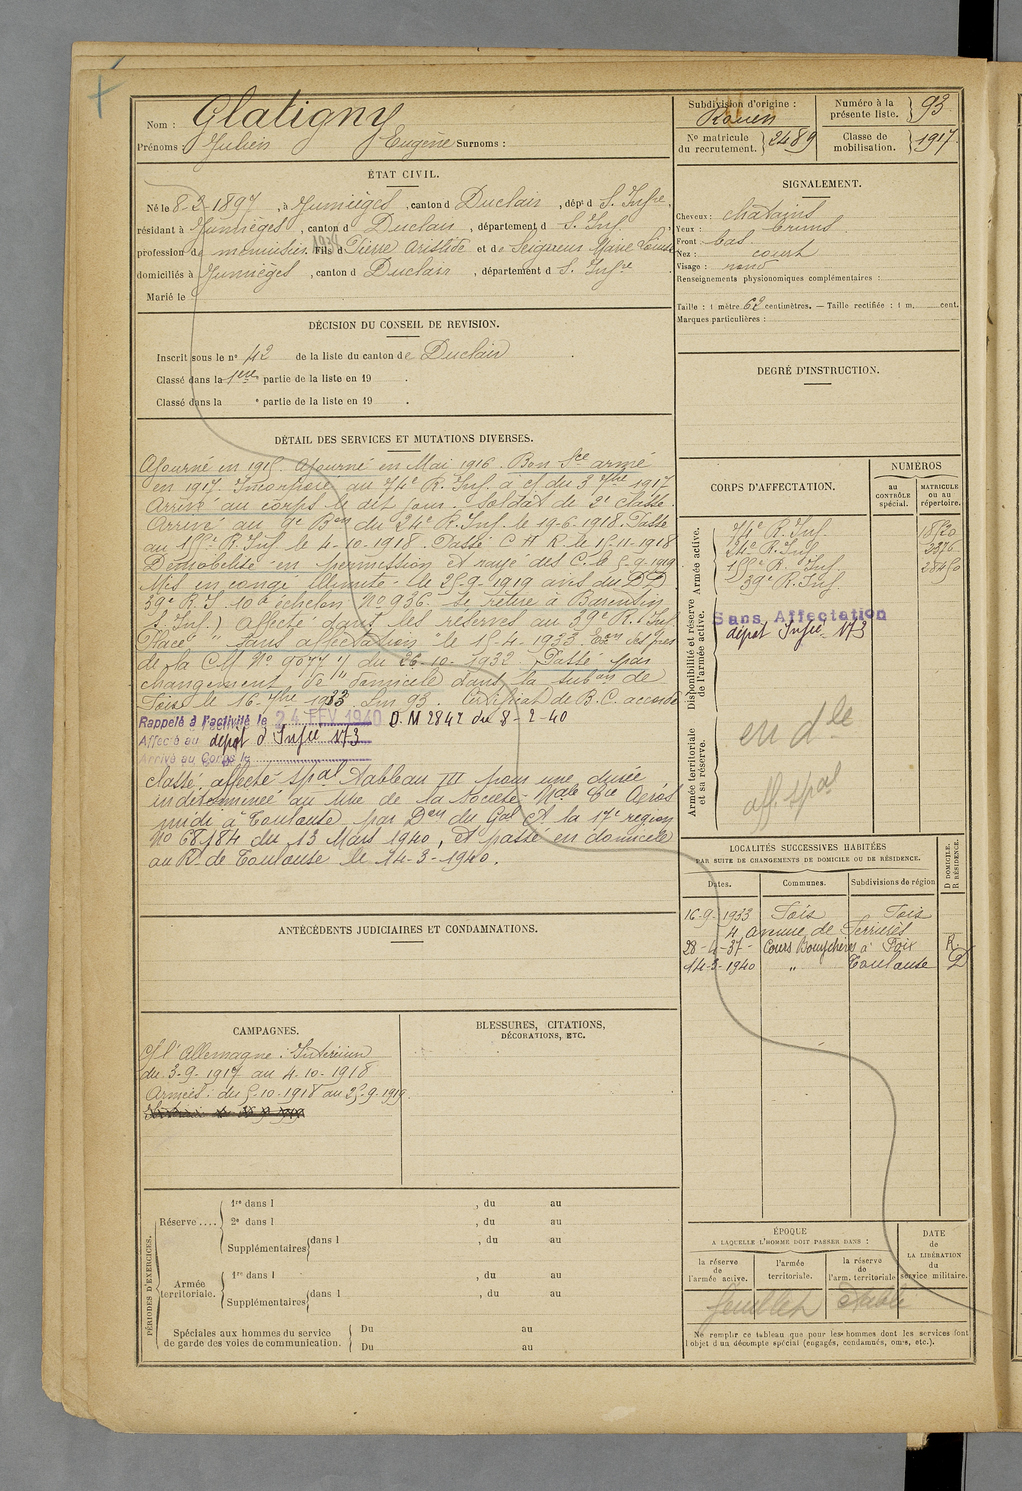 Nom : Glatigny
Prénoms : Julien Eugène Surnoms :
ÉTAT CIVIL.
Né le 8-2-1897, à Jumièges, canton d Duclair, dépt d S. Infre,
résidant à Jumièges, canton d Duclair, département d S. Inf.
profession de menuisier. Fils d Pierre Aristide et de Seigneur Marie Louise
domiciliés à Jumièges, canton d Duclair, département d S. Infre
Marié le
DÉCISION DU CONSEIL DE REVISION.
Inscrit sous le n° 42 de la liste du canton de Duclair.
Classé dans la 1ere partie de la liste en 19 .
Classé dans la e partie de la liste en 19 .
DÉTAIL DES SERVICES ET MUTATIONS DIVERSES.
Ajourné en 1915. Ajourné en Mai 1916. Bon Sce armé
en 1917. Incorporé au 74e R. Inf. à c/ du 3 7bre 1917
Arrivé au corps le dit jour. Soldat de 2e classe.
Arrivé au 9e Bon du 24e R. Inf. le 19-6-1918. Passé
au 155e R. Inf. le 4-10-1918. Passé C H R le 15-11-1918
Démobilisé en permission et rayé des C. le 5-9-1919.
Mis en congé illimité le 25-9-1919 avis du DD
39e R. I. 10e échelon N° 936. Se retire à Barentin
S. Inf.) affecté dans les réserves au 39e R. Inf.
Placé " sans affectation " le 15-4-1933
de la CM N° 9077 1/ du 26-10-1932 Passé par
changement de domicile dans la subon de
Foix le 16-7bre 1933. Lm 93. Certificat de B.C. accordé
Rappelé à l'activité le 24 FEV 1940 D.M 2842 du 8-2-40
Affecté au dépôt d'Infie 173
Arrivé au Corps le
classé affecté spal tableau III pour une durée
indéterminée au titre de la Société Nale Cie Aéros
midi à Toulouse par Don du Gal Ct la 17e région
N° 68.184 du 13 Mars 1940, et passé en domicile
au R. de Toulouse le 14-3-1940.
ANTÉCÉDENTS JUDICIAIRES ET CONDAMNATIONS.
CAMPAGNES.
C/ l'Allemagne : Intérieur
du 3-9-1917 au 4-10-1918
Armées: du 5-10-1918 au 25-9-1919.
BLESSURES, CITATIONS,
DÉCORATIONS, ETC.
PÉRIODES D'EXERCICES.
Réserve ....
1re dans l , du au
2e dans l , du au
Supplémentaires dans l , du au
Armée territoriale.
1re dans l , du au
Supplémentaires dans l , du au
Spéciales aux hommes du service
de garde des voies de communication.
Du au
Du au
Subdivision d'origine :
Rouen
Numéro à la
présente liste. 93
N° matricule
du recrutement. 2489
Classe de
mobilisation. 1917
SIGNALEMENT.
Cheveux : chatains
Yeux : bruns
Front : bas
Nez : court
Visage : rond
Renseignements physionomiques complémentaires :
Taille : 1 mètre 62 centimètres. — Taille rectifiée : 1 m. cent.
Marques particulières :
DEGRÉ D'INSTRUCTION.
CORPS D'AFFECTATION.
NUMÉROS
au
CONTRÔLE
spécial.
MATRICULE
ou au
répertoire.
Armée active.
74e R. Inf. 18520
24e R. Inf. 2376
155e R. Inf. 28450
39e R. Inf.
Disponibilité et réserve
de l'armée active.
Sans Affectation
dépôt Infie 173
Armée territoriale
et sa réserve.
en dle
aff. spal
LOCALITÉS SUCCESSIVES HABITÉES
PAR SUITE DE CHANGEMENTS DE DOMICILE OU DE RÉSIDENCE.
D DOMICILE.
R RÉSIDENCE.
Dates. Communes. Subdivisions de région
16-9-1933 Foix Foix
4 avenue de Ferrières
28-4-37- Cours à Foix R.
14-3-1940 " Toulouse D
ÉPOQUE
A LAQUELLE L'HOMME DOIT PASSER DANS :
la réserve
de
l'armée active.
l'armée
territoriale.
la réserve
de
l'arm. territoriale
DATE
de
LA LIBÉRATION
du
service militaire.
feuillet établi
Ne remplir ce tableau que pour les hommes dont les services font
l'objet d'un décompte spécial (engagés, condamnés, omis, etc.).